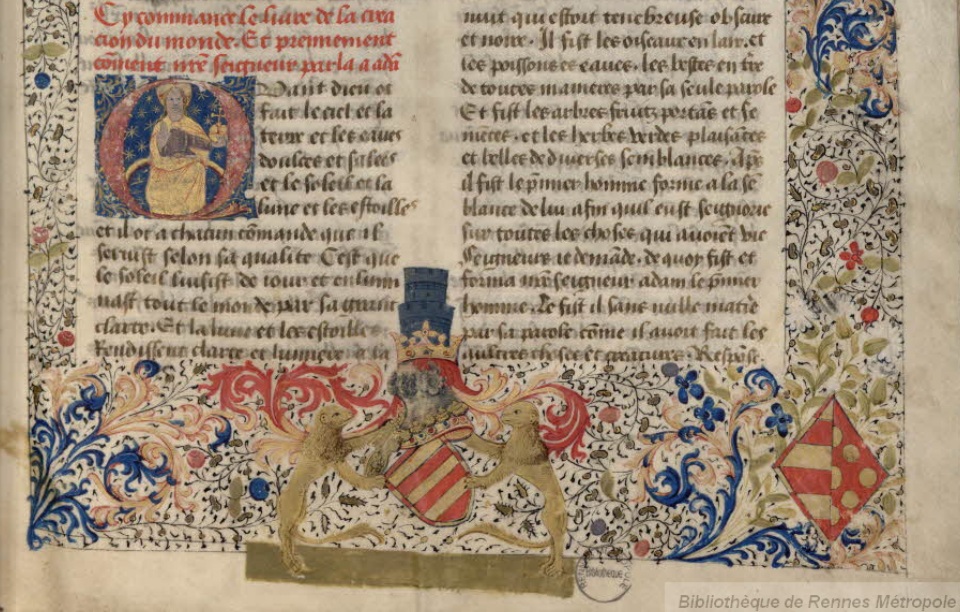 Cy commance le livre de la crea
cion du monde. Et premierement
coment nre seigneur parla a ada
Quant dieu ot
fait le ciel et la
terre et les eaues
doulces et salees
et le soleil et la
lune et les estoilles
et il ot a chacun comande que il
servist selon sa qualite Cest que
le soleil luisist de jour et enlumi
nast tout le monde par sa grant
clarte. Et la lune et les estoilles
Rendissent clarte et lumiere et la
nuit qui estoit tenebreuse obscure
et noire. Il fist les oiseaux en lair. et
les poissons es eaues. les bestes en tre
de toutes manieres par sa seule parole
Et fist les arbres fruitz portans et se
mences. et les herbes verdes plaisantes
et belles de diverses semblances. Apz
il fist le pmier homme forme a la se
blance de lui afin quil eust seignorie
sur toutes les choses qui avoient vie
Seigneurs je demade. de quoy fist et
forma nre seigneur adam le pmier
homme. Le fist il sans nulle matie
par sa parole come il avoit fait les
aultres choses et creatures. Respose.
BIBLIOTHEQUE
Bibliothèque de Rennes Métropole